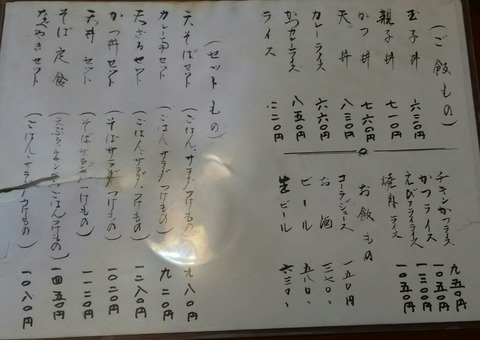 (ご飯もの)
玉子丼 六三〇円
親子丼 七一〇円
かつ丼 七六〇円
天丼 八三〇円
カレーライス 六六〇円
かつカレーライス 八五〇円
ライス 二二〇円
チキンかつライス 九五〇円
かつライス 一〇五〇円
えびフライライス 一三〇〇円
焼肉ライス 一〇五〇円
お飲もの
コーラ・ジュース 一五〇円
お酒 三七〇、
ビール 五八〇、
生ビール 六三〇、
(セットもの)
天そばセット (ごはん、サラダ、つけもの) 九八〇円
カレー南セット (ごはん、サラダ、つけもの) 九二〇円
天ざるセット (ごはん、サラダ、つけもの) 一二八〇円
かつ丼セット (そば サラダ つけもの) 一〇二〇円
天丼セット (そば サラダ つけもの) 一一二〇円
そば定食 ごはん、つけもの) 一四五〇円
なべやきセット (ごはん、サラダ、つけもの) 一〇八〇円